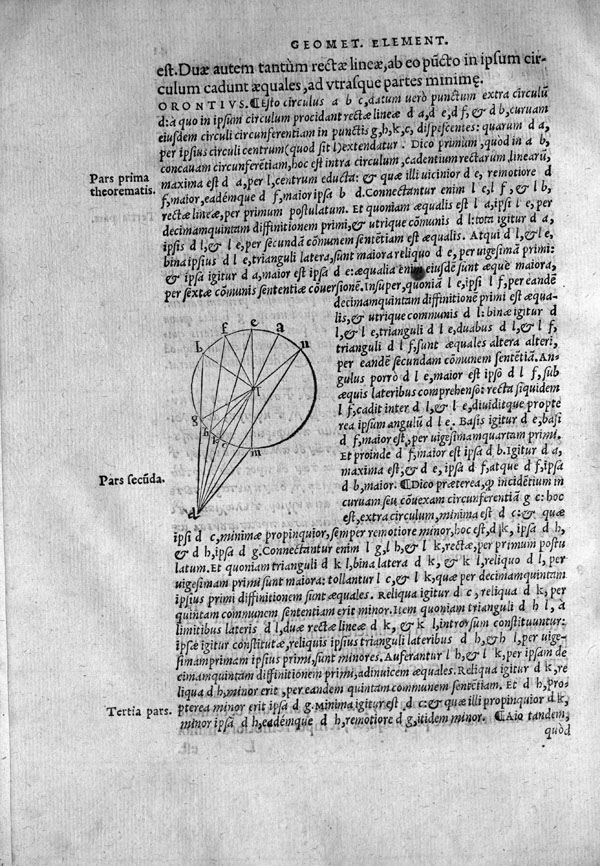 GEOMET. ELEMENT.
est. Duæ autem tantùm rectæ lineæ, ab eo pũcto in ipsum cir-
culum cadunt æquales, ad vtrasque partes minimę.
ORONTIVS. ¶Esto circulus a b c, datum uerò punctum extra circulũ
d: à quo in ipsum circulum procidant rectæ lineæ d a, d e, d f, & d b, curuam
eiusdem circuli circunferentiam in punctis g, h, k, c, dispescentes: quarum d a,
per ipsius circuli centrum (quod sit l) extendatur. Dico primum, quòd in a b,
concauam circunferẽtiam, hoc est intra circulum, cadentium rectarum, linearũ,
Pars prima
theorematis.
maxima est d a, per l, centrum educta: & quæ illi uicinior d e, remotiore d
f, maior, eadémque d f, maior ipsa b d. Connectantur enim l e, l f, & l b,
rectæ lineæ, per primum postulatum. Et quoniam æqualis est l a, ipsi l e, per
decimamquintam diffinitionem primi, & utrique cõmunis d l: tota igitur d a,
ipsis d l, & l e, per secundã cõmunem sentẽtiam est æqualis. Atqui d l, & l e,
bina ipsius d l e, trianguli latera, sunt maiora reliquo d e, per uigesimã primi:
& ipsa igitur d a, maior est ipsa d e: æqualia enim eiusdẽ sunt æquè maiora,
per sextæ cõmunis sententiæ cõuersionẽ. Insuper, quoniã l e, ipsi l f, per eandẽ
decimamquintam diffinitionẽ primi est æqua-
lis, & utrique communis d l: binæ igitur d
l, & l e, trianguli d l e, duabus d l, & l f,
trianguli d l f, sunt æquales altera alteri,
per eandẽ secundam cõmunem sentẽtiã. An-
gulus porrò d l e, maior est ipso d l f, sub
æquis lateribus comprehenso: recta siquidem
l f, cadit inter d l, & l e, diuiditque propte
rea ipsum angulũ d l e. Basis igitur d e, basi
d f, maior est, per uigesimamquartam primi.
Et proinde d f, maior est ipsa d b. Igitur d a,
maxima est, & d e, ipsa d f, atque d f, ipsa
Pars secũda.
d b, maior. ¶Dico præterea, ꝙ incidẽtium in
curuam seu cõuexam circunferentiã g c: hoc
est, extra circulum, minima est d c: & quæ
ipsi d c, minimæ propinquior, semper remotiore minor, hoc est, d k, ipsa d h,
& d h, ipsa d g. Connectantur enim l g, l h, & l k, rectæ, per primum postu
latum. Et quoniam trianguli d k l, bina latera d k, & k l, reliquo d l, per
uigesimam primi sunt maiora: tollantur l c, & l k, quæ per decimamquintam
ipsius primi diffinitionem sunt æquales. Reliqua igitur d c, reliqua d k, per
quintam communem sententiam erit minor. Item quoniam trianguli d h l, à
limitibus lateris d l, duæ rectæ lineæ d k, & k l, introrsum constituuntur:
ipsæ igitur constitutæ, reliquis ipsius trianguli lateribus d h, & h l, per uige-
simamprimam ipsius primi, sunt minores. Auferantur l h, & l k, per ipsam de
cimamquintam diffinitionem primi, adinuicem æquales. Reliqua igitur d k, re
liqua d h, minor erit, per eandem quintam communem sentẽtiam. Et d h, pro-
Tertia pars.
pterea minor erit ipsa d g. Minima igitur est d c: & quæ illi propinquior d k,
minor ipsa d h, eadémque d h, remotiore d g, itidem minor. ¶Aio tandem,
quòd
b f e a n
l
g h k c m
d